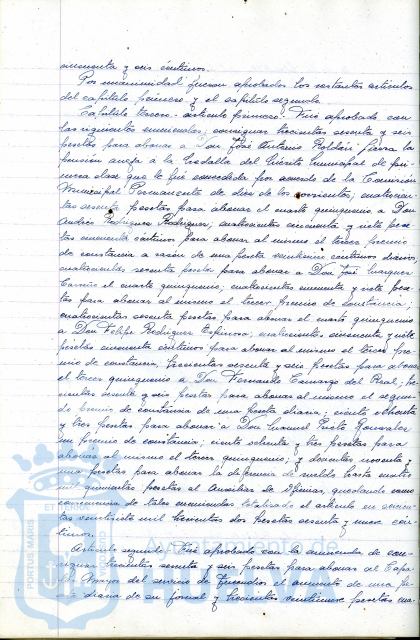 cincuenta y seis céntimos.
Por unanimidad fueron aprobados los restantes artículos
del capítulo primero y el capítulo segundo.
Capítulo tercero.- artículo primero.- Fué aprobado con
las siguientes enmiendas: consignar trescientas sesenta y seis
pesetas para abonar a Don José Antonio Roldán la
pensión aneja a la Medalla del Mérito Municipal de pri-
mera clase que le fué concedida por acuerdo de la Comisión
Municipal Permanente de diez de los corrientes; cuatrocien-
tas sesenta pesetas para abonar el cuarto quinquenio a Don
Andrés Rodríguez Rodríguez; cuatrocientas cincuenta y siete pese-
tas cincuenta céntimos para abonar al mismo el tercer premio
de constancia a razón de una peseta veinticinco céntimos diarios;
cuatrocientas sesenta pesetas para abonar a Don José
el cuarto quinquenio; cuatrocientas cincuenta y siete pese-
tas para abonar al mismo el tercer premio de constancia;
cuatrocientas sesenta pesetas para abonar el cuarto quinquenio
a Don Felipe Rodríguez Espinosa; cuatrocientas cincuenta y siete
pesetas cincuenta céntimos para abonar al mismo el tercer pre-
mio de constancia; trescientas sesenta y seis pesetas para abonar
el tercer quinquenio a Don Fernando Camargo del Real; tres-
cientas sesenta y seis pesetas para abonar al mismo el segun-
do premio de constancia de una peseta diaria; ciento ochenta
y tres pesetas para abonar a Don Manuel González
un premio de constancia; ciento setenta y tres pesetas para
abonar al mismo el tercer quinquenio; y doscientas noventa y
una pesetas para abonar la diferencia de sueldo hasta cuatro
mil quinientas pesetas al Auxiliar de quedando como
consecuencia de tales enmiendas totalizado el artículo en
veintisiete mil trescientas dos pesetas sesenta y cinco cén-
timos.
Artículo segundo. Fué aprobado con la enmienda de con-
signar trescientas sesenta y seis pesetas para abonar al Capa-
taz Mayor del servicio de Incendios el aumento de una pe-
seta diaria de su jornal y trescientas veinticinco pesetas
Ayuntamiento de
PORTUS MARIS
ET TERRAE